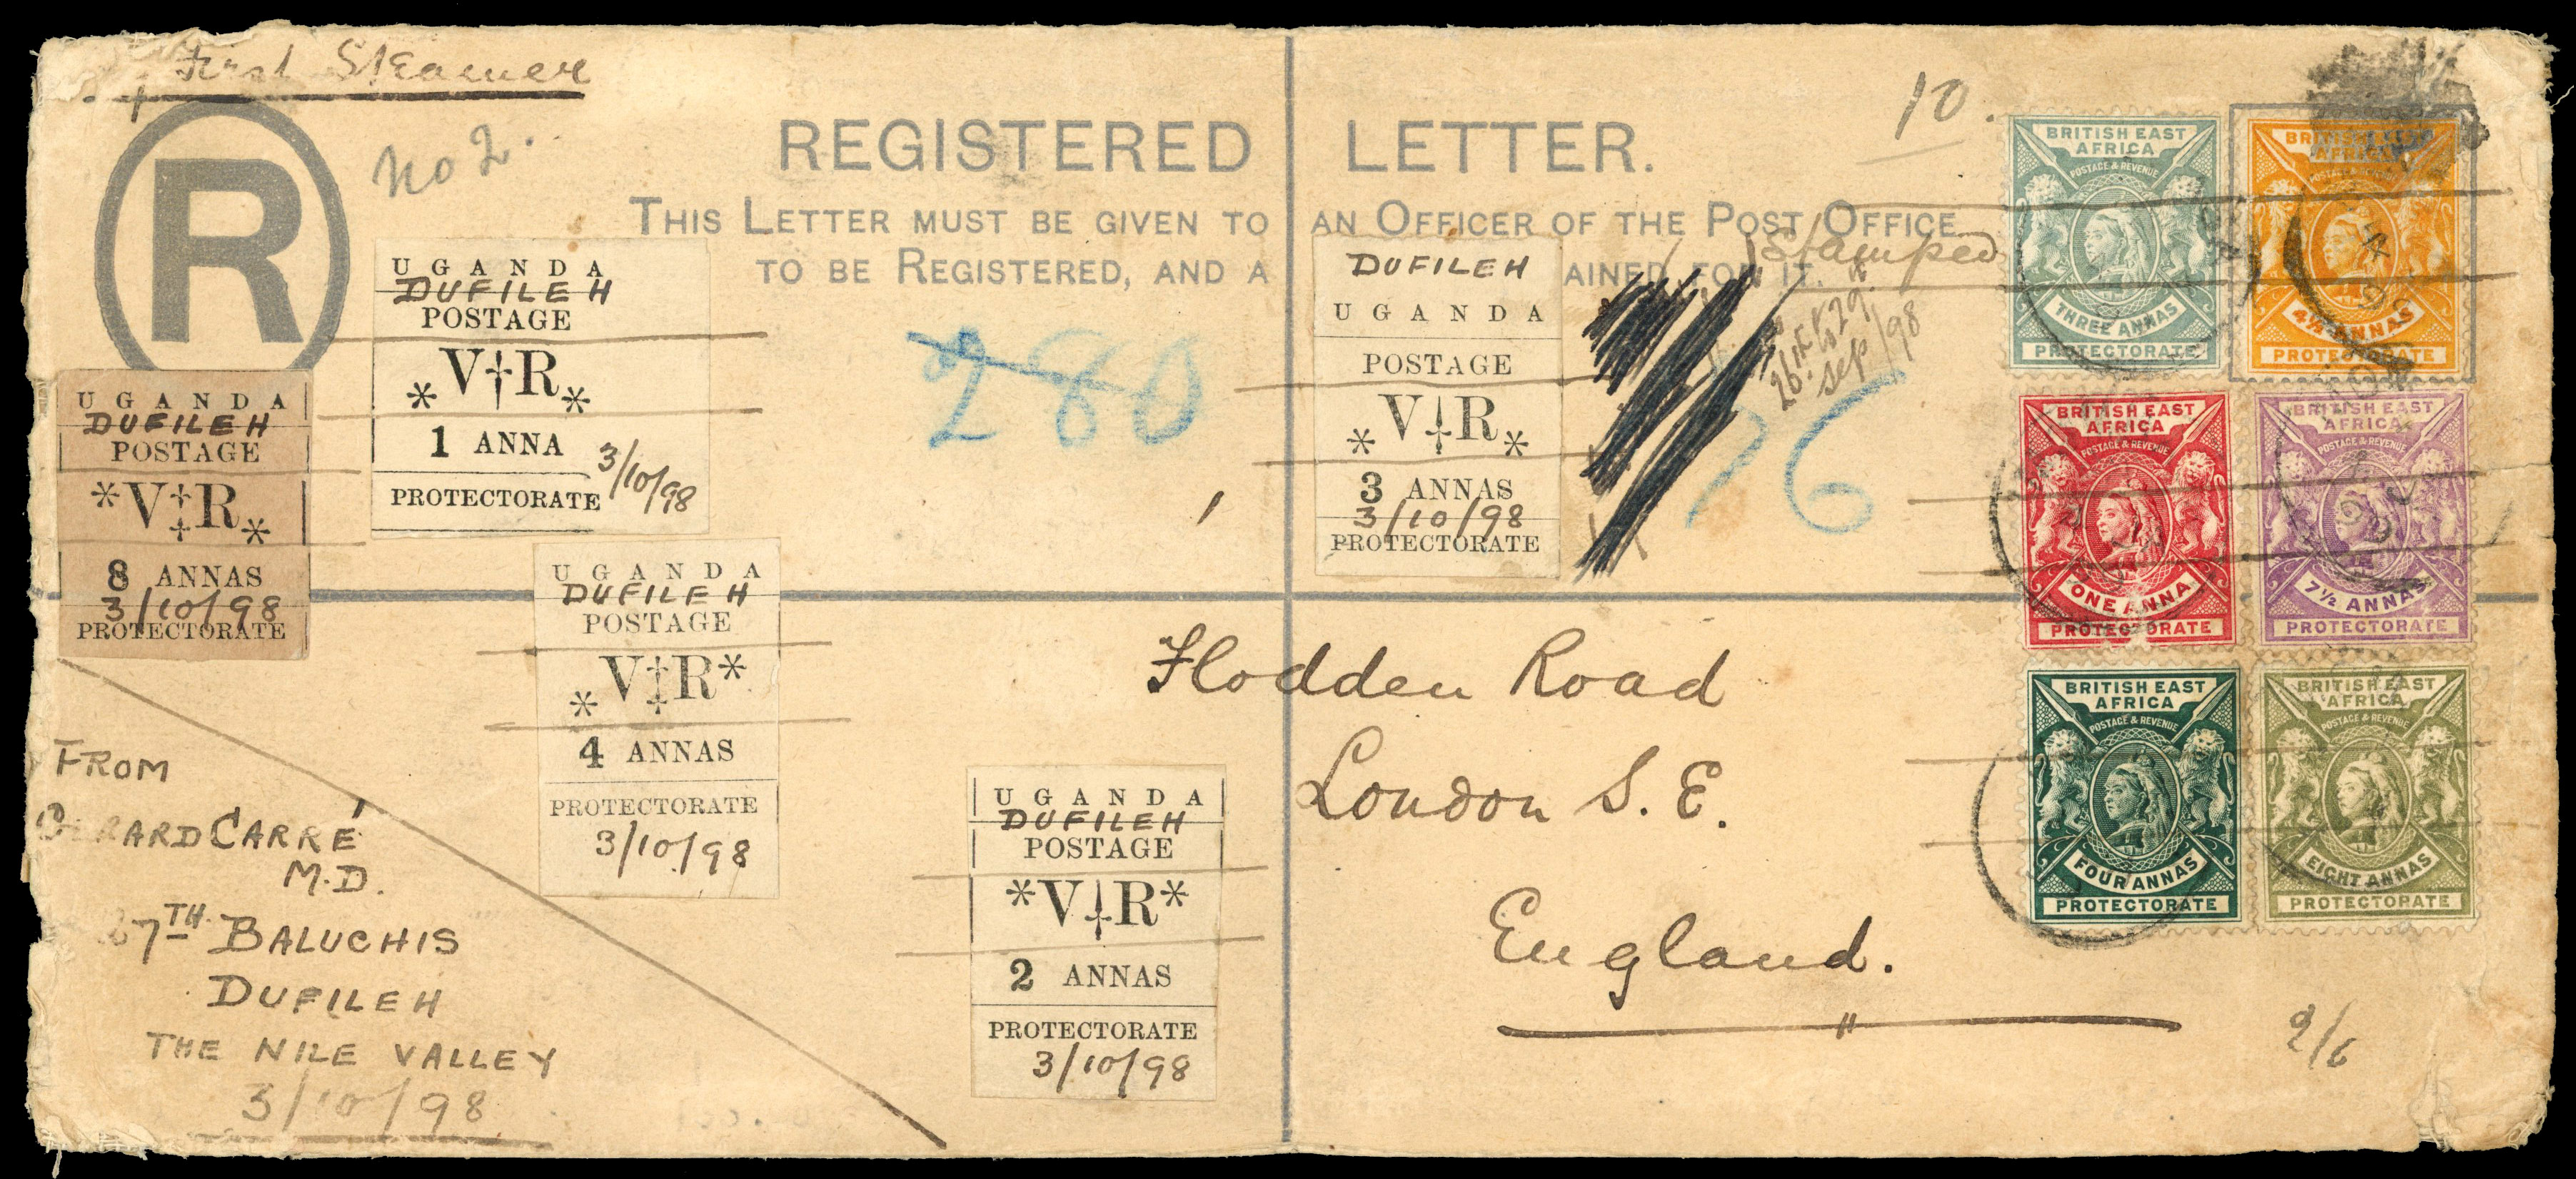 First Steamer
R
No 2.
10.
REGISTERED LETTER.
THIS LETTER MUST BE GIVEN TO AN OFFICER OF THE POST OFFICE
TO BE REGISTERED, AND A AINED FOR IT.
Stamped
Sep/98
280
76
UGANDA
DUFILEH
POSTAGE
V R
1 ANNA
3/10/98
PROTECTORATE
UGANDA
DUFILEH
POSTAGE
V R
8 ANNAS
3/10/98
PROTECTORATE
UGANDA
DUFILEH
POSTAGE
V R
4 ANNAS
PROTECTORATE
3/10/98
UGANDA
DUFILEH
POSTAGE
V R
2 ANNAS
PROTECTORATE
3/10/98
DUFILEH
UGANDA
POSTAGE
V R
3 ANNAS
3/10/98
PROTECTORATE
BRITISH EAST
AFRICA
POSTAGE & REVENUE
THREE ANNAS
PROTECTORATE
BRITISH EAST
AFRICA
POSTAGE & REVENUE
4½ ANNAS
PROTECTORATE
BRITISH EAST
AFRICA
POSTAGE & REVENUE
ONE ANNA
PROTECTORATE
BRITISH EAST
AFRICA
POSTAGE & REVENUE
7½ ANNAS
PROTECTORATE
BRITISH EAST
AFRICA
POSTAGE & REVENUE
FOUR ANNAS
PROTECTORATE
BRITISH EAST
AFRICA
POSTAGE & REVENUE
EIGHT ANNAS
PROTECTORATE
Flodden Road
London S.E.
England.
2/6
FROM
CARRÉ
M.D.
27TH BALUCHIS
DUFILEH
THE NILE VALLEY
3/10/98